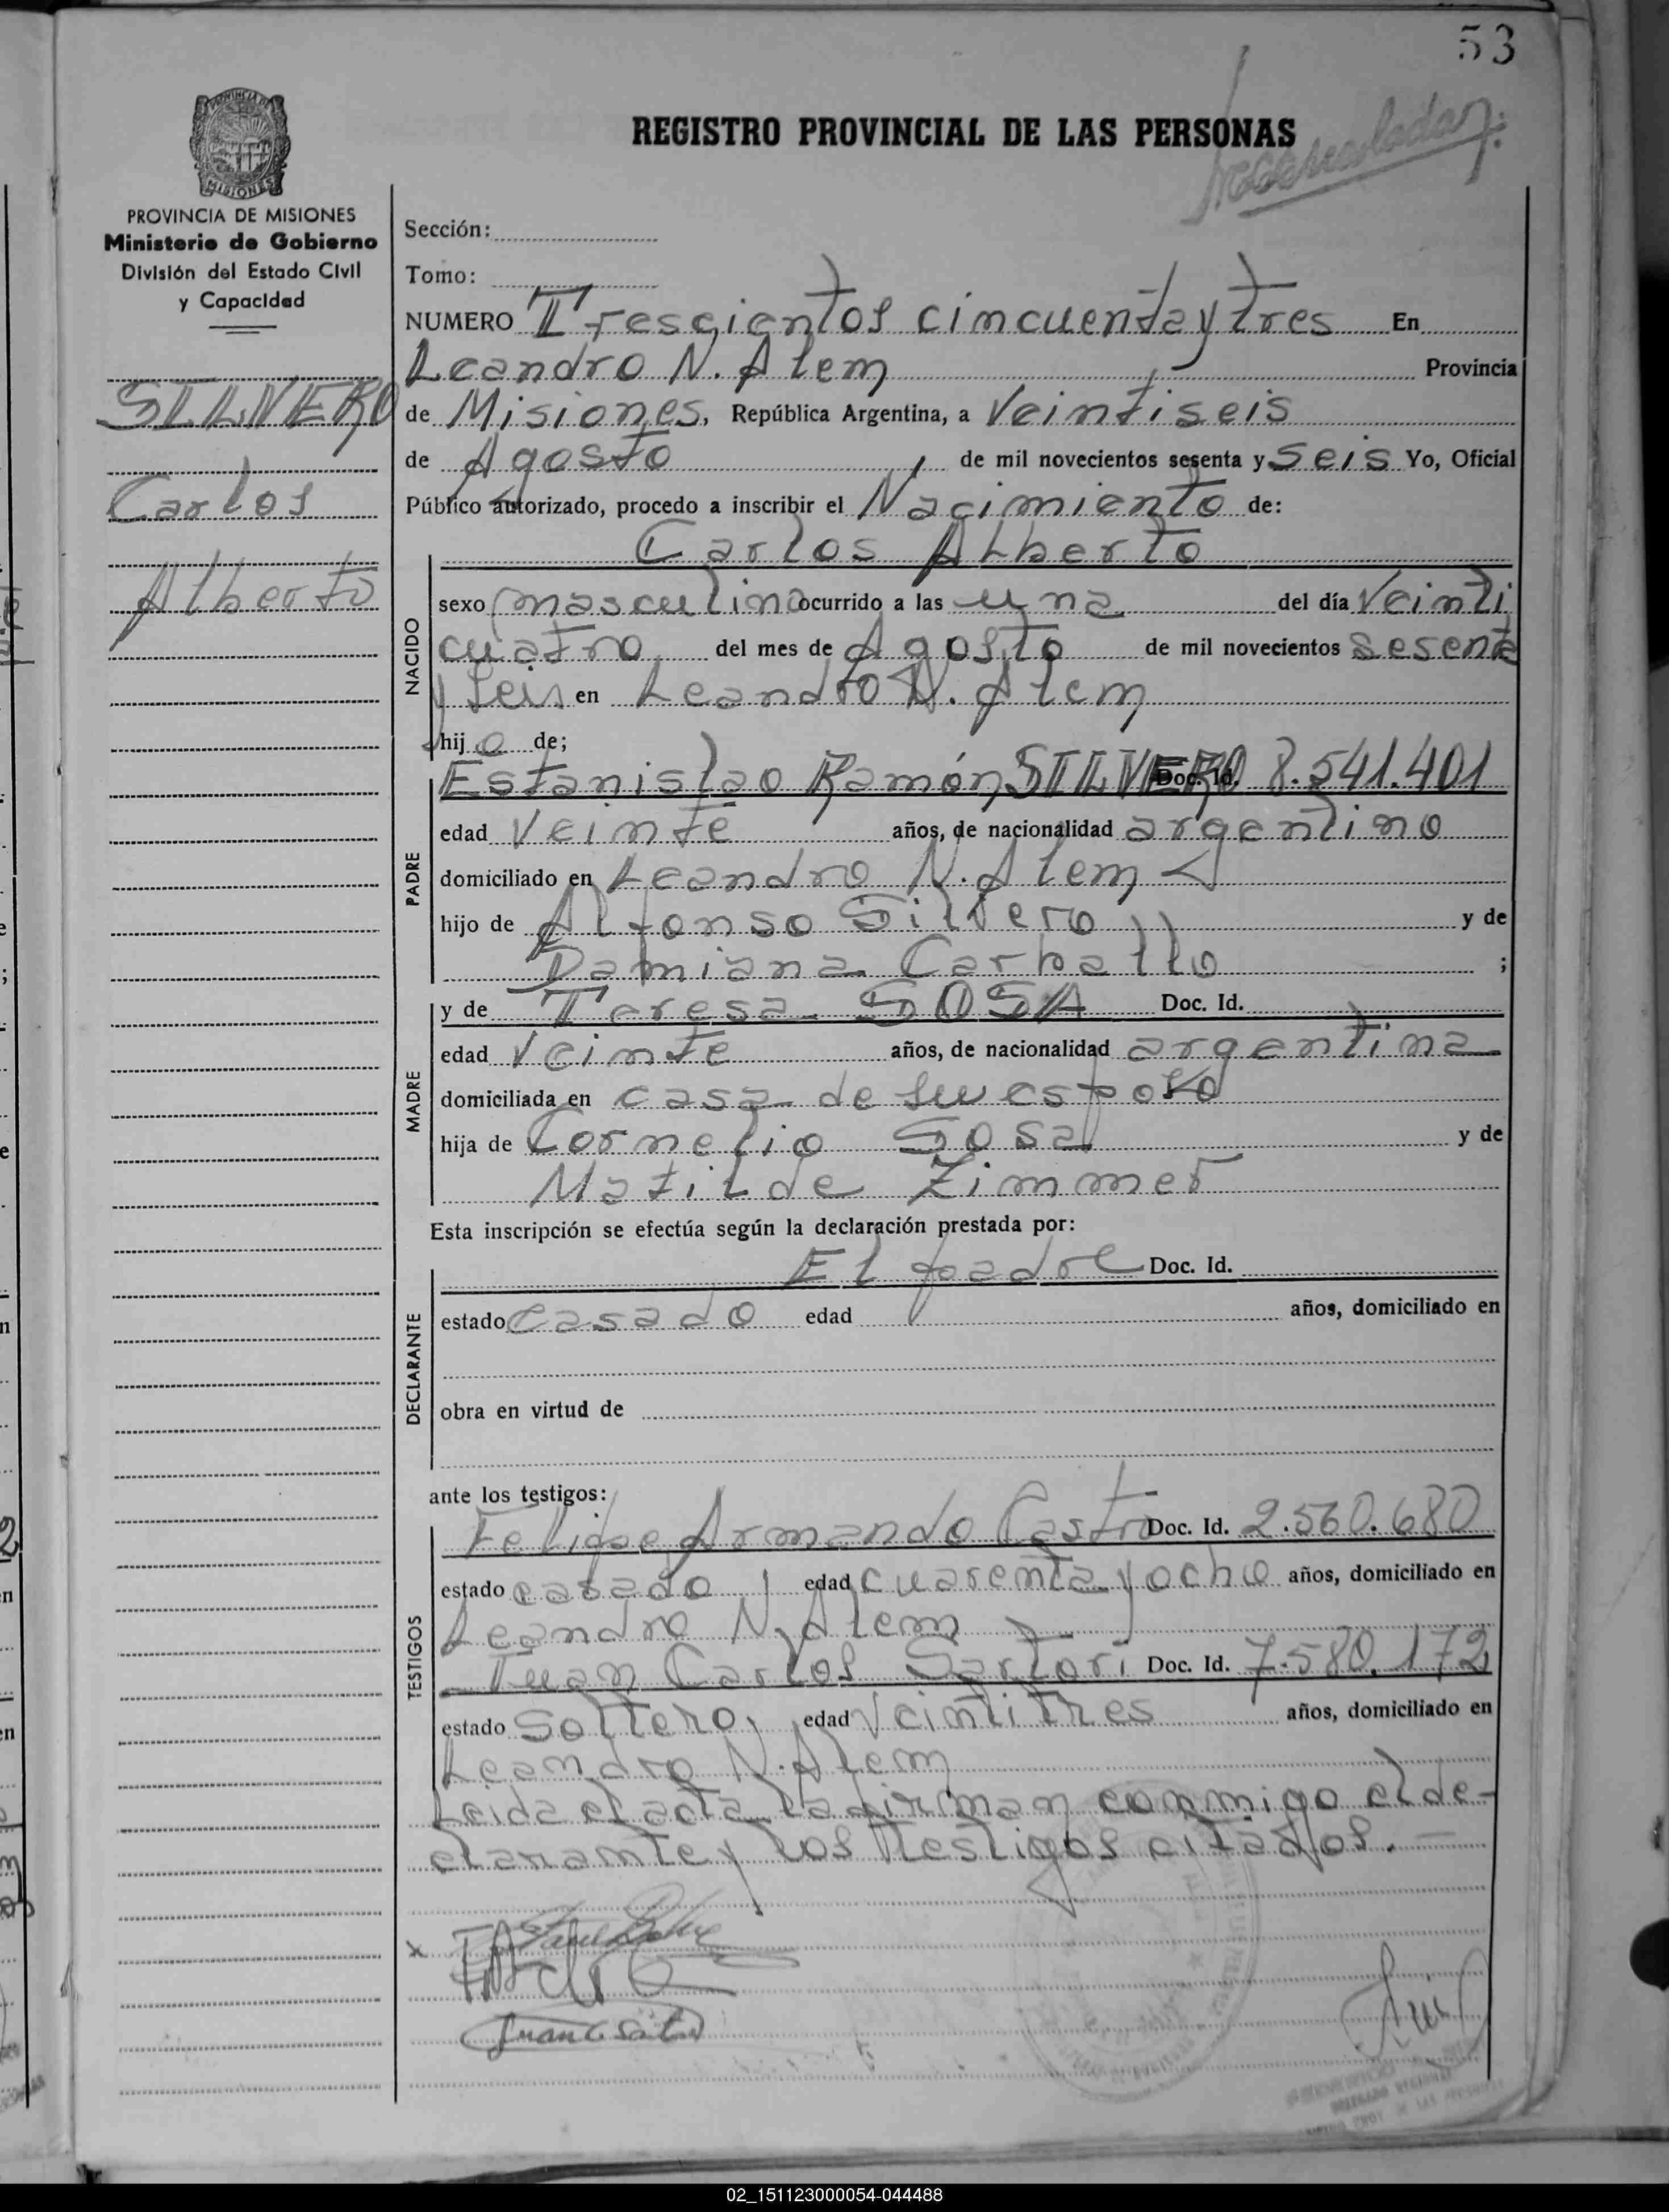 53
REGISTRO PROVINCIAL DE LAS PERSONAS
PROVINCIA DE MISIONES
Ministerio de Gobierno
División del Estado Civil
y Capacidad
SILVERO
Carlos
Alberto
Sección:
Tomo:
NUMERO Trescientos cincuenta y tres En
Leandro N. Alem Provincia
de Misiones, República Argentina, a Veintiseis
de Agosto, de mil novecientos sesenta y seis Yo, Oficial
Público autorizado, procedo a inscribir el Nacimiento de:
Carlos Alberto
NACIDO
sexo masculino ocurrido a las una del día Veinti
cuatro del mes de Agosto de mil novecientos sesenta
y seis en Leandro N. Alem
hijo de;
PADRE
Estanislao Ramón SILVERO Doc. Id. 8.541.401
edad Veinte años, de nacionalidad argentino
domiciliado en Leandro N. Alem
hijo de Alfonso Silvero y de
Damiana Carballo ;
MADRE
y de Teresa SOSA Doc. Id.
edad Veinte años, de nacionalidad argentina
domiciliada en casa de su esposo
hija de Cornelio Sosa y de
Matilde Zimmer
Esta inscripción se efectúa según la declaración prestada por:
DECLARANTE
El padre Doc. Id.
estado casado edad años, domiciliado en
obra en virtud de
ante los testigos:
TESTIGOS
Felipe Armando Castro Doc. Id. 2.560.680
estado casado, edad cuarenta y ocho años, domiciliado en
Leandro N. Alem
Juan Carlos Sartori Doc. Id. 7.580.172
estado Soltero, edad Veintitres años, domiciliado en
Leandro N. Alem
Leida el acta la firman conmigo el de-
clarante y los testigos citados. —
x
02_151123000054-044488